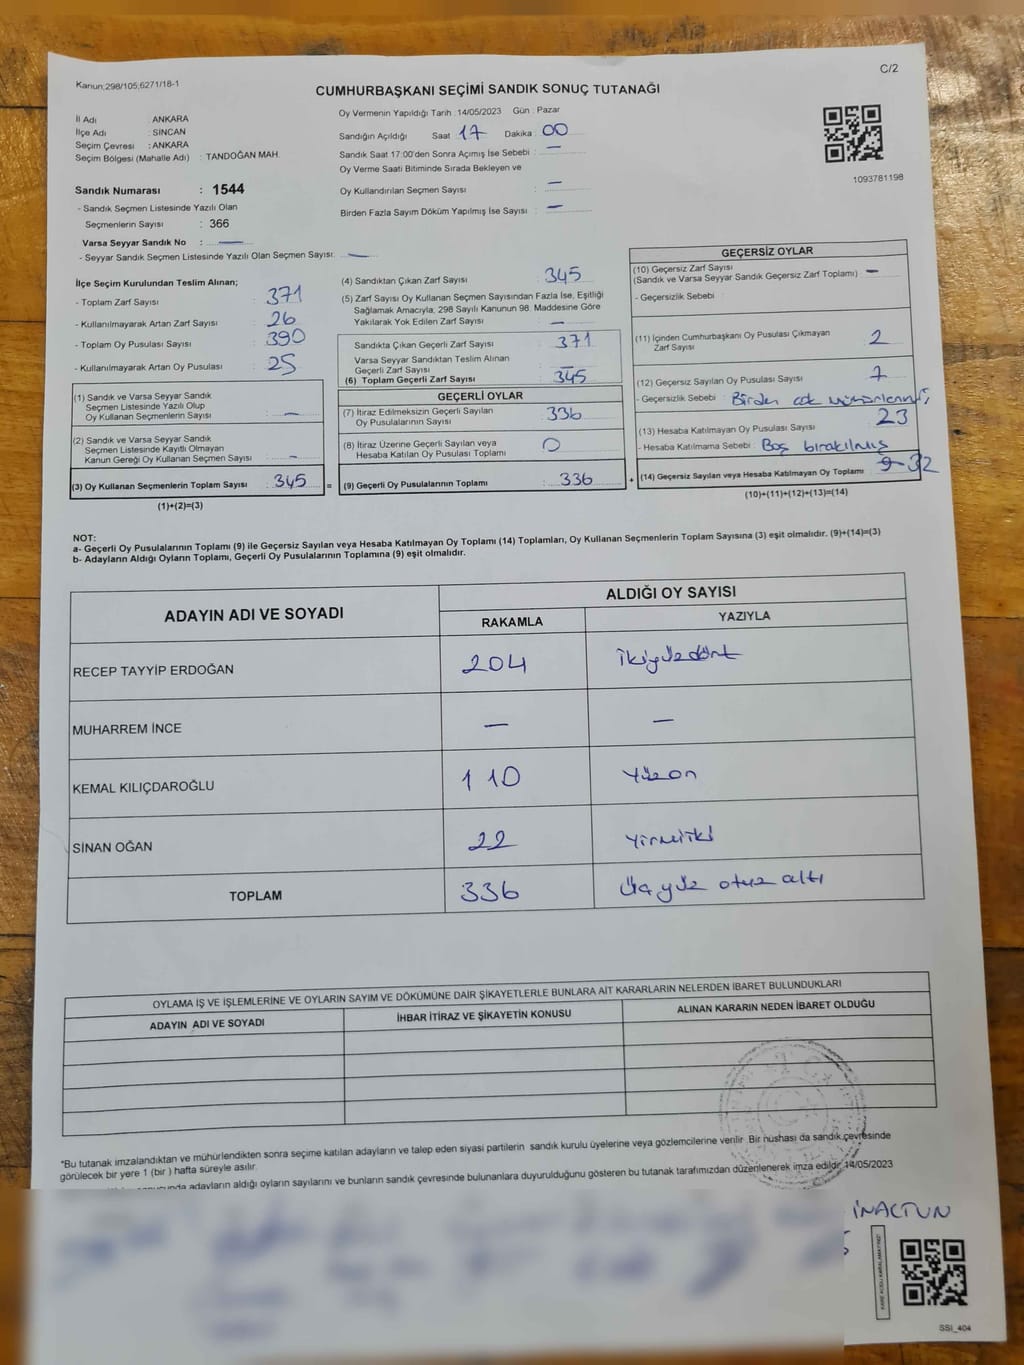 C/2
Kanun;298/105;6271/18-1
CUMHURBAŞKANI SEÇİMİ SANDIK SONUÇ TUTANAĞI
İl Adı : ANKARA
İlçe Adı : SİNCAN
Seçim Çevresi : ANKARA
Seçim Bölgesi (Mahalle Adı) : TANDOĞAN MAH.
Sandık Numarası : 1544
- Sandık Seçmen Listesinde Yazılı Olan
Seçmenlerin Sayısı : 366
Varsa Seyyar Sandık No : —
- Seyyar Sandık Seçmen Listesinde Yazılı Olan Seçmen Sayısı: —
Oy Vermenin Yapıldığı Tarih :14/05/2023 Gün : Pazar
Sandığın Açıldığı Saat 17 Dakika : 00
Sandık Saat 17:00'den Sonra Açımış İse Sebebi : —
Oy Verme Saati Bitiminde Sırada Bekleyen ve
Oy Kullandırılan Seçmen Sayısı : —
Birden Fazla Sayım Döküm Yapılmış İse Sayısı : —
1093781198
İlçe Seçim Kurulundan Teslim Alınan;
- Toplam Zarf Sayısı : 371
- Kullanılmayarak Artan Zarf Sayısı : 26
- Toplam Oy Pusulası Sayısı : 390
- Kullanılmayarak Artan Oy Pusulası : 25
(1) Sandık ve Varsa Seyyar Sandık
Seçmen Listesinde Yazılı Olup
Oy Kullanan Seçmenlerin Sayısı : —
(2) Sandık ve Varsa Seyyar Sandık
Seçmen Listesinde Kayıtlı Olmayan
Kanun Gereği Oy Kullanan Seçmen Sayısı : —
(3) Oy Kullanan Seçmenlerin Toplam Sayısı : 345 =
(1)+(2)=(3)
(4) Sandıktan Çıkan Zarf Sayısı : 345
(5) Zarf Sayısı Oy Kullanan Seçmen Sayısından Fazla İse, Eşitliği
Sağlamak Amacıyla; 298 Sayılı Kanunun 98. Maddesine Göre
Yakılarak Yok Edilen Zarf Sayısı : —
Sandıkta Çıkan Geçerli Zarf Sayısı : 371
Varsa Seyyar Sandıktan Teslim Alınan
Geçerli Zarf Sayısı : —
(6) Toplam Geçerli Zarf Sayısı : 345
GEÇERLİ OYLAR
(7) İtiraz Edilmeksizin Geçerli Sayılan
Oy Pusulalarının Sayısı : 336
(8) İtiraz Üzerine Geçerli Sayılan veya
Hesaba Katılan Oy Pusulası Toplamı : 0
(9) Geçerli Oy Pusulalarının Toplamı : 336 +
GEÇERSİZ OYLAR
(10) Geçersiz Zarf Sayısı
(Sandık ve Varsa Seyyar Sandık Geçersiz Zarf Toplamı) : —
- Geçersizlik Sebebi :
(11) İçinden Cumhurbaşkanı Oy Pusulası Çıkmayan
Zarf Sayısı : 2
(12) Geçersiz Sayılan Oy Pusulası Sayısı : 7
- Geçersizlik Sebebi : Birden çok
(13) Hesaba Katılmayan Oy Pusulası Sayısı : 23
- Hesaba Katılmama Sebebi : Boş bırakılmış
(14) Geçersiz Sayılan veya Hesaba Katılmayan Oy Toplamı : 9 32
(10)+(11)+(12)+(13)=(14)
NOT:
a- Geçerli Oy Pusulalarının Toplamı (9) ile Geçersiz Sayılan veya Hesaba Katılmayan Oy Toplamı (14) Toplamları, Oy Kullanan Seçmenlerin Toplam Sayısına (3) eşit olmalıdır. (9)+(14)=(3)
b- Adayların Aldığı Oyların Toplamı, Geçerli Oy Pusulalarının Toplamına (9) eşit olmalıdır.
ADAYIN ADI VE SOYADI
ALDIĞI OY SAYISI
RAKAMLA YAZIYLA
RECEP TAYYİP ERDOĞAN 204 ikiyüzdört
MUHARREM İNCE — —
KEMAL KILIÇDAROĞLU 110 Yüzon
SİNAN OĞAN 22 Yirmiiki
TOPLAM 336 üçyüz otuz altı
OYLAMA İŞ VE İŞLEMLERİNE VE OYLARIN SAYIM VE DÖKÜMÜNE DAİR ŞİKAYETLERLE BUNLARA AİT KARARLARIN NELERDEN İBARET BULUNDUKLARI
ADAYIN ADI VE SOYADI İHBAR İTİRAZ VE ŞİKAYETİN KONUSU ALINAN KARARIN NEDEN İBARET OLDUĞU
*Bu tutanak imzalandıktan ve mühürlendikten sonra seçime katılan adayların ve talep eden siyasi partilerin sandık kurulu üyelerine veya gözlemcilerine verilir. Bir nüshası da sandık çevresinde
görülecek bir yere 1 (bir) hafta süreyle asılır.
adayların aldığı oyların sayılarını ve bunların sandık çevresinde bulunanlara duyurulduğunu gösteren bu tutanak tarafımızdan düzenlenerek imza edildi. 14/05/2023
İNALTUN
SSI_404